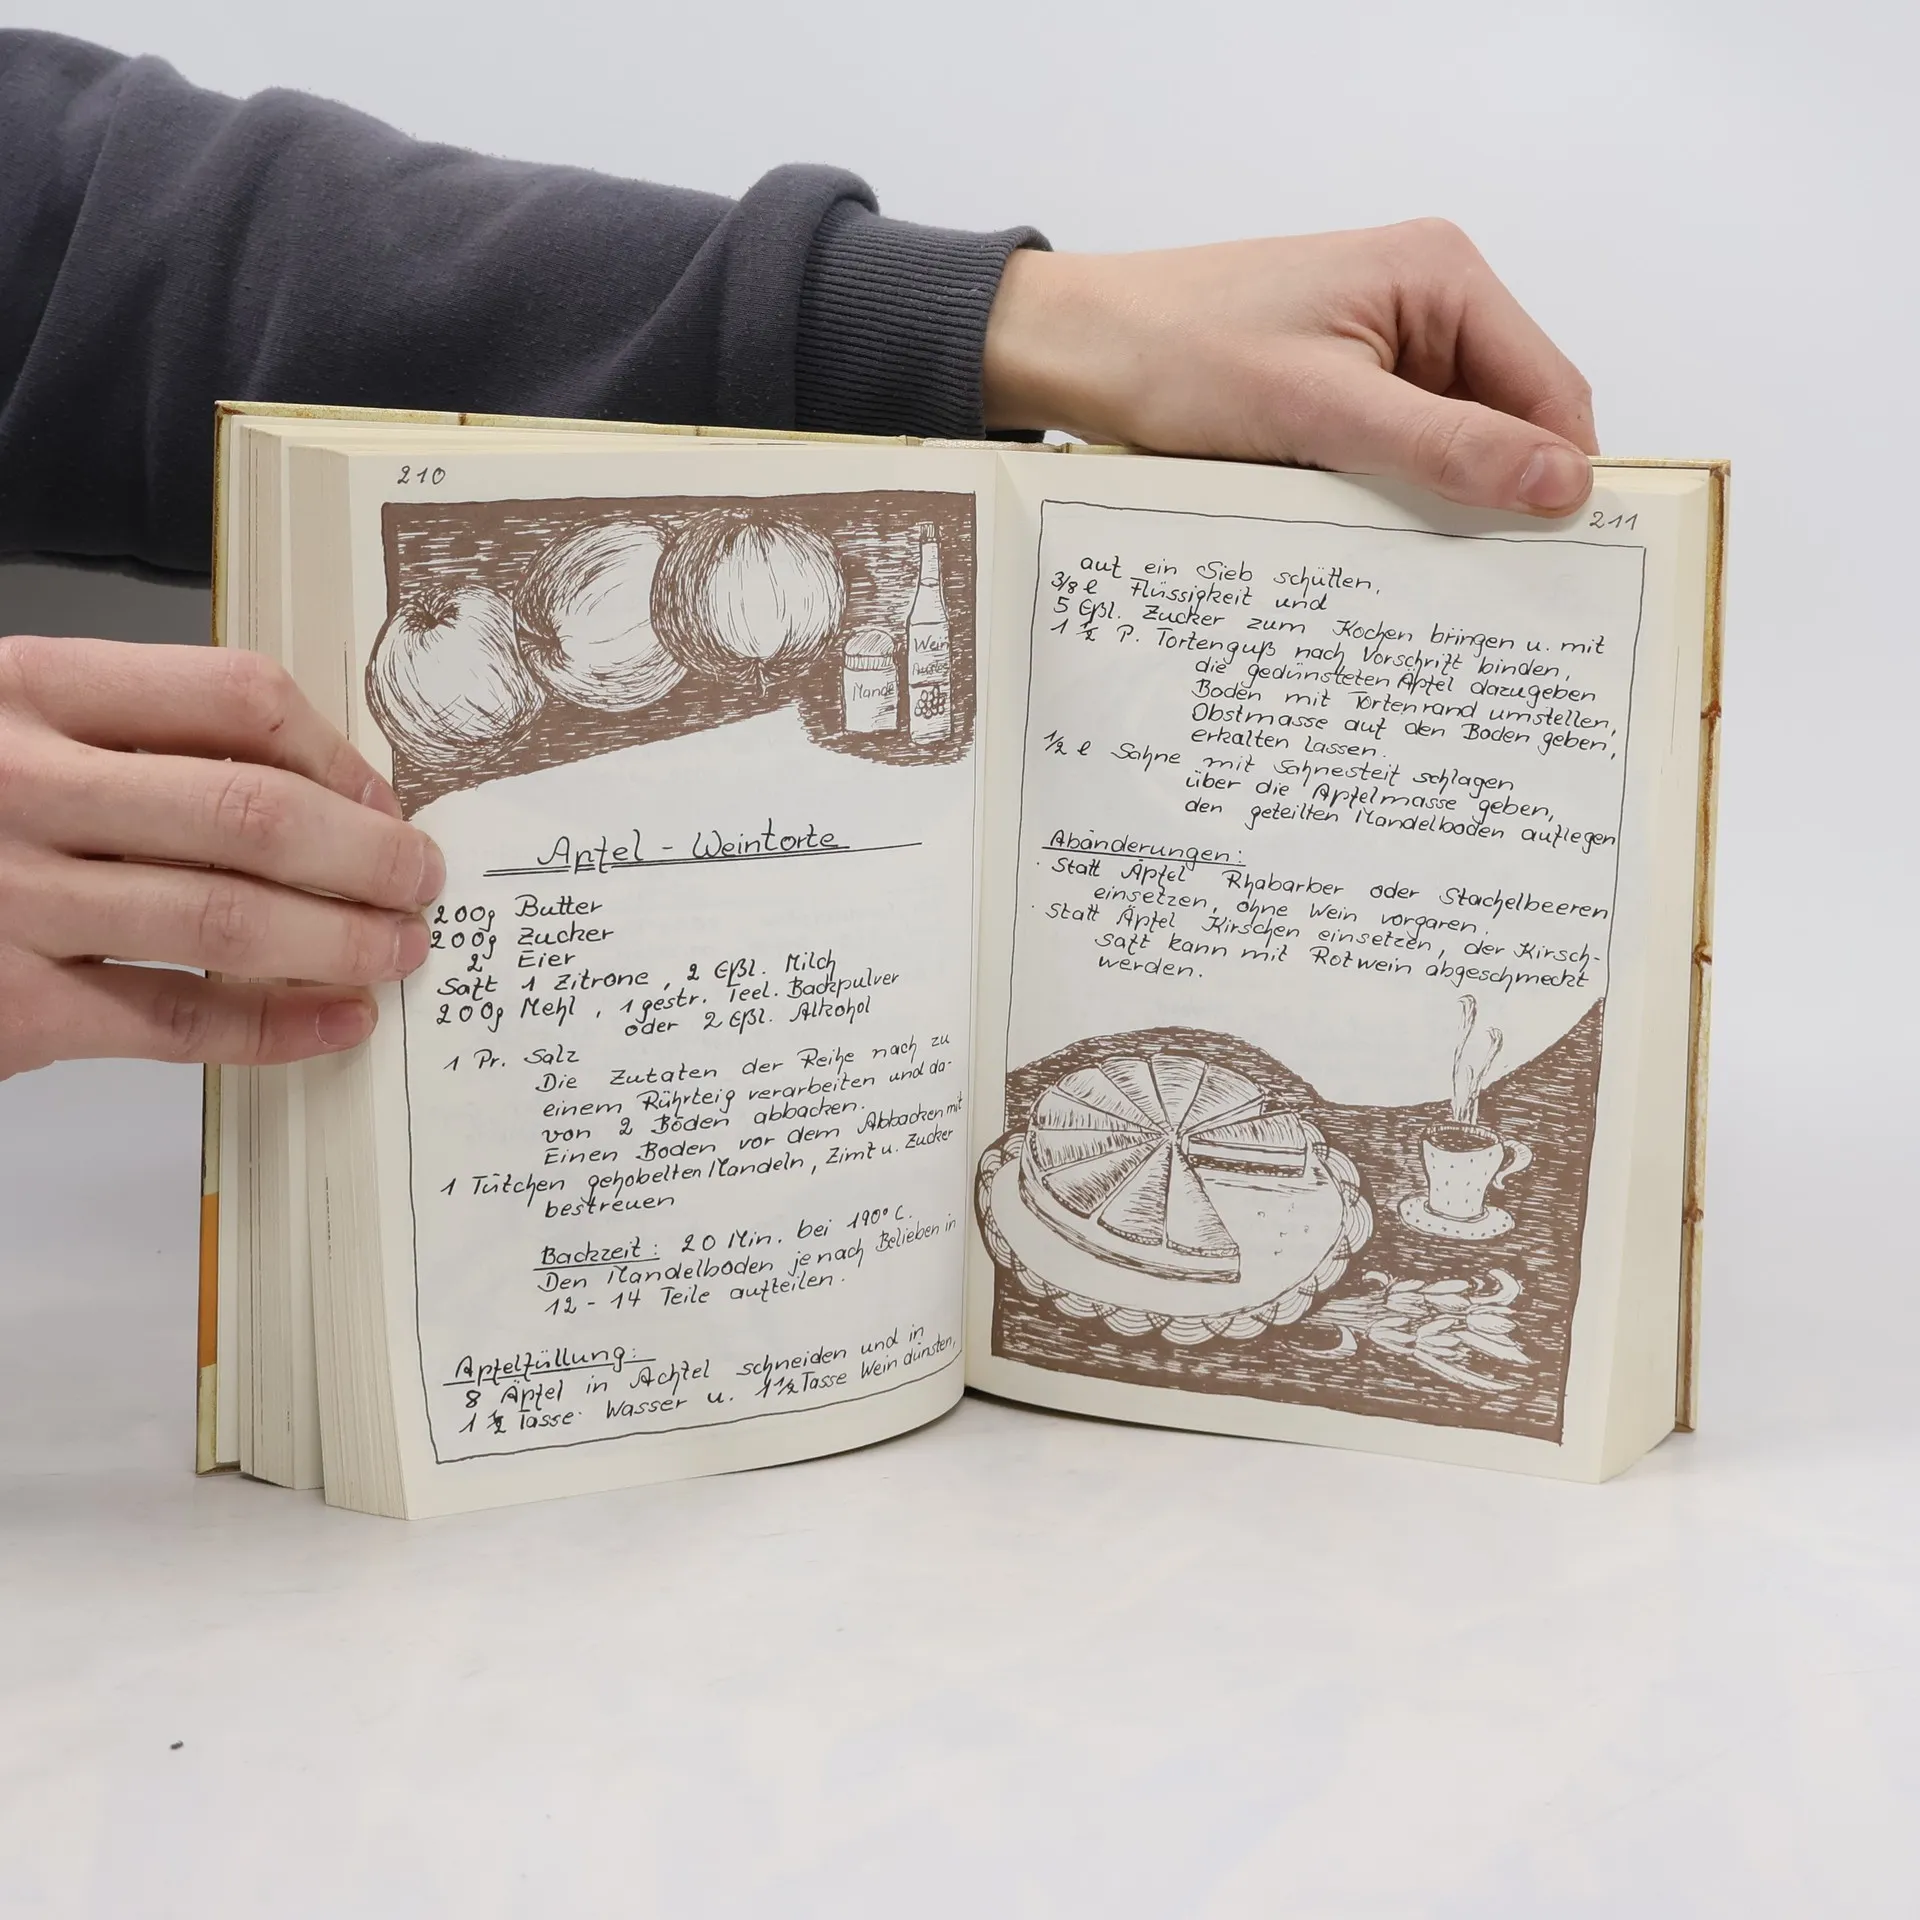 210
Mandel
Wein
Apfel - Weintorte
200g Butter
200g Zucker
2 Eier
Saft 1 Zitrone, 2 Eßl. Milch
200g Mehl, 1 gestr. Teel. Backpulver
oder 2 Eßl. Alkohol
1 Pr. Salz
Die Zutaten der Reihe nach zu
einem Rührteig verarbeiten und da-
von 2 Böden abbacken.
Einen Boden vor dem Abbacken mit
1 Tütchen gehobelten Mandeln, Zimt u. Zucker
bestreuen
Backzeit: 20 Min. bei 190° C.
Den Mandelboden je nach Belieben in
12 - 14 Teile aufteilen.
Apfelfüllung:
8 Äpfel in Achtel schneiden und in
1 ½ Tasse Wasser u. 1 ½ Tasse Wein dünsten,
211
auf ein Sieb schütten,
3/8 l Flüssigkeit und
5 Eßl. Zucker zum Kochen bringen u. mit
1 ½ P. Tortenguß nach Vorschrift binden,
die gedünsteten Äpfel dazugeben
Boden mit Tortenrand umstellen,
Obstmasse auf den Boden geben,
erkalten lassen.
1/2 l Sahne mit Sahnesteif schlagen
über die Apfelmasse geben,
den geteilten Mandelboden auflegen
Abänderungen:
· Statt Äpfel Rhabarber oder Stachelbeeren
einsetzen, ohne Wein vorgaren.
· Statt Äpfel Kirschen einsetzen, der Kirsch-
saft kann mit Rotwein abgeschmeckt
werden.